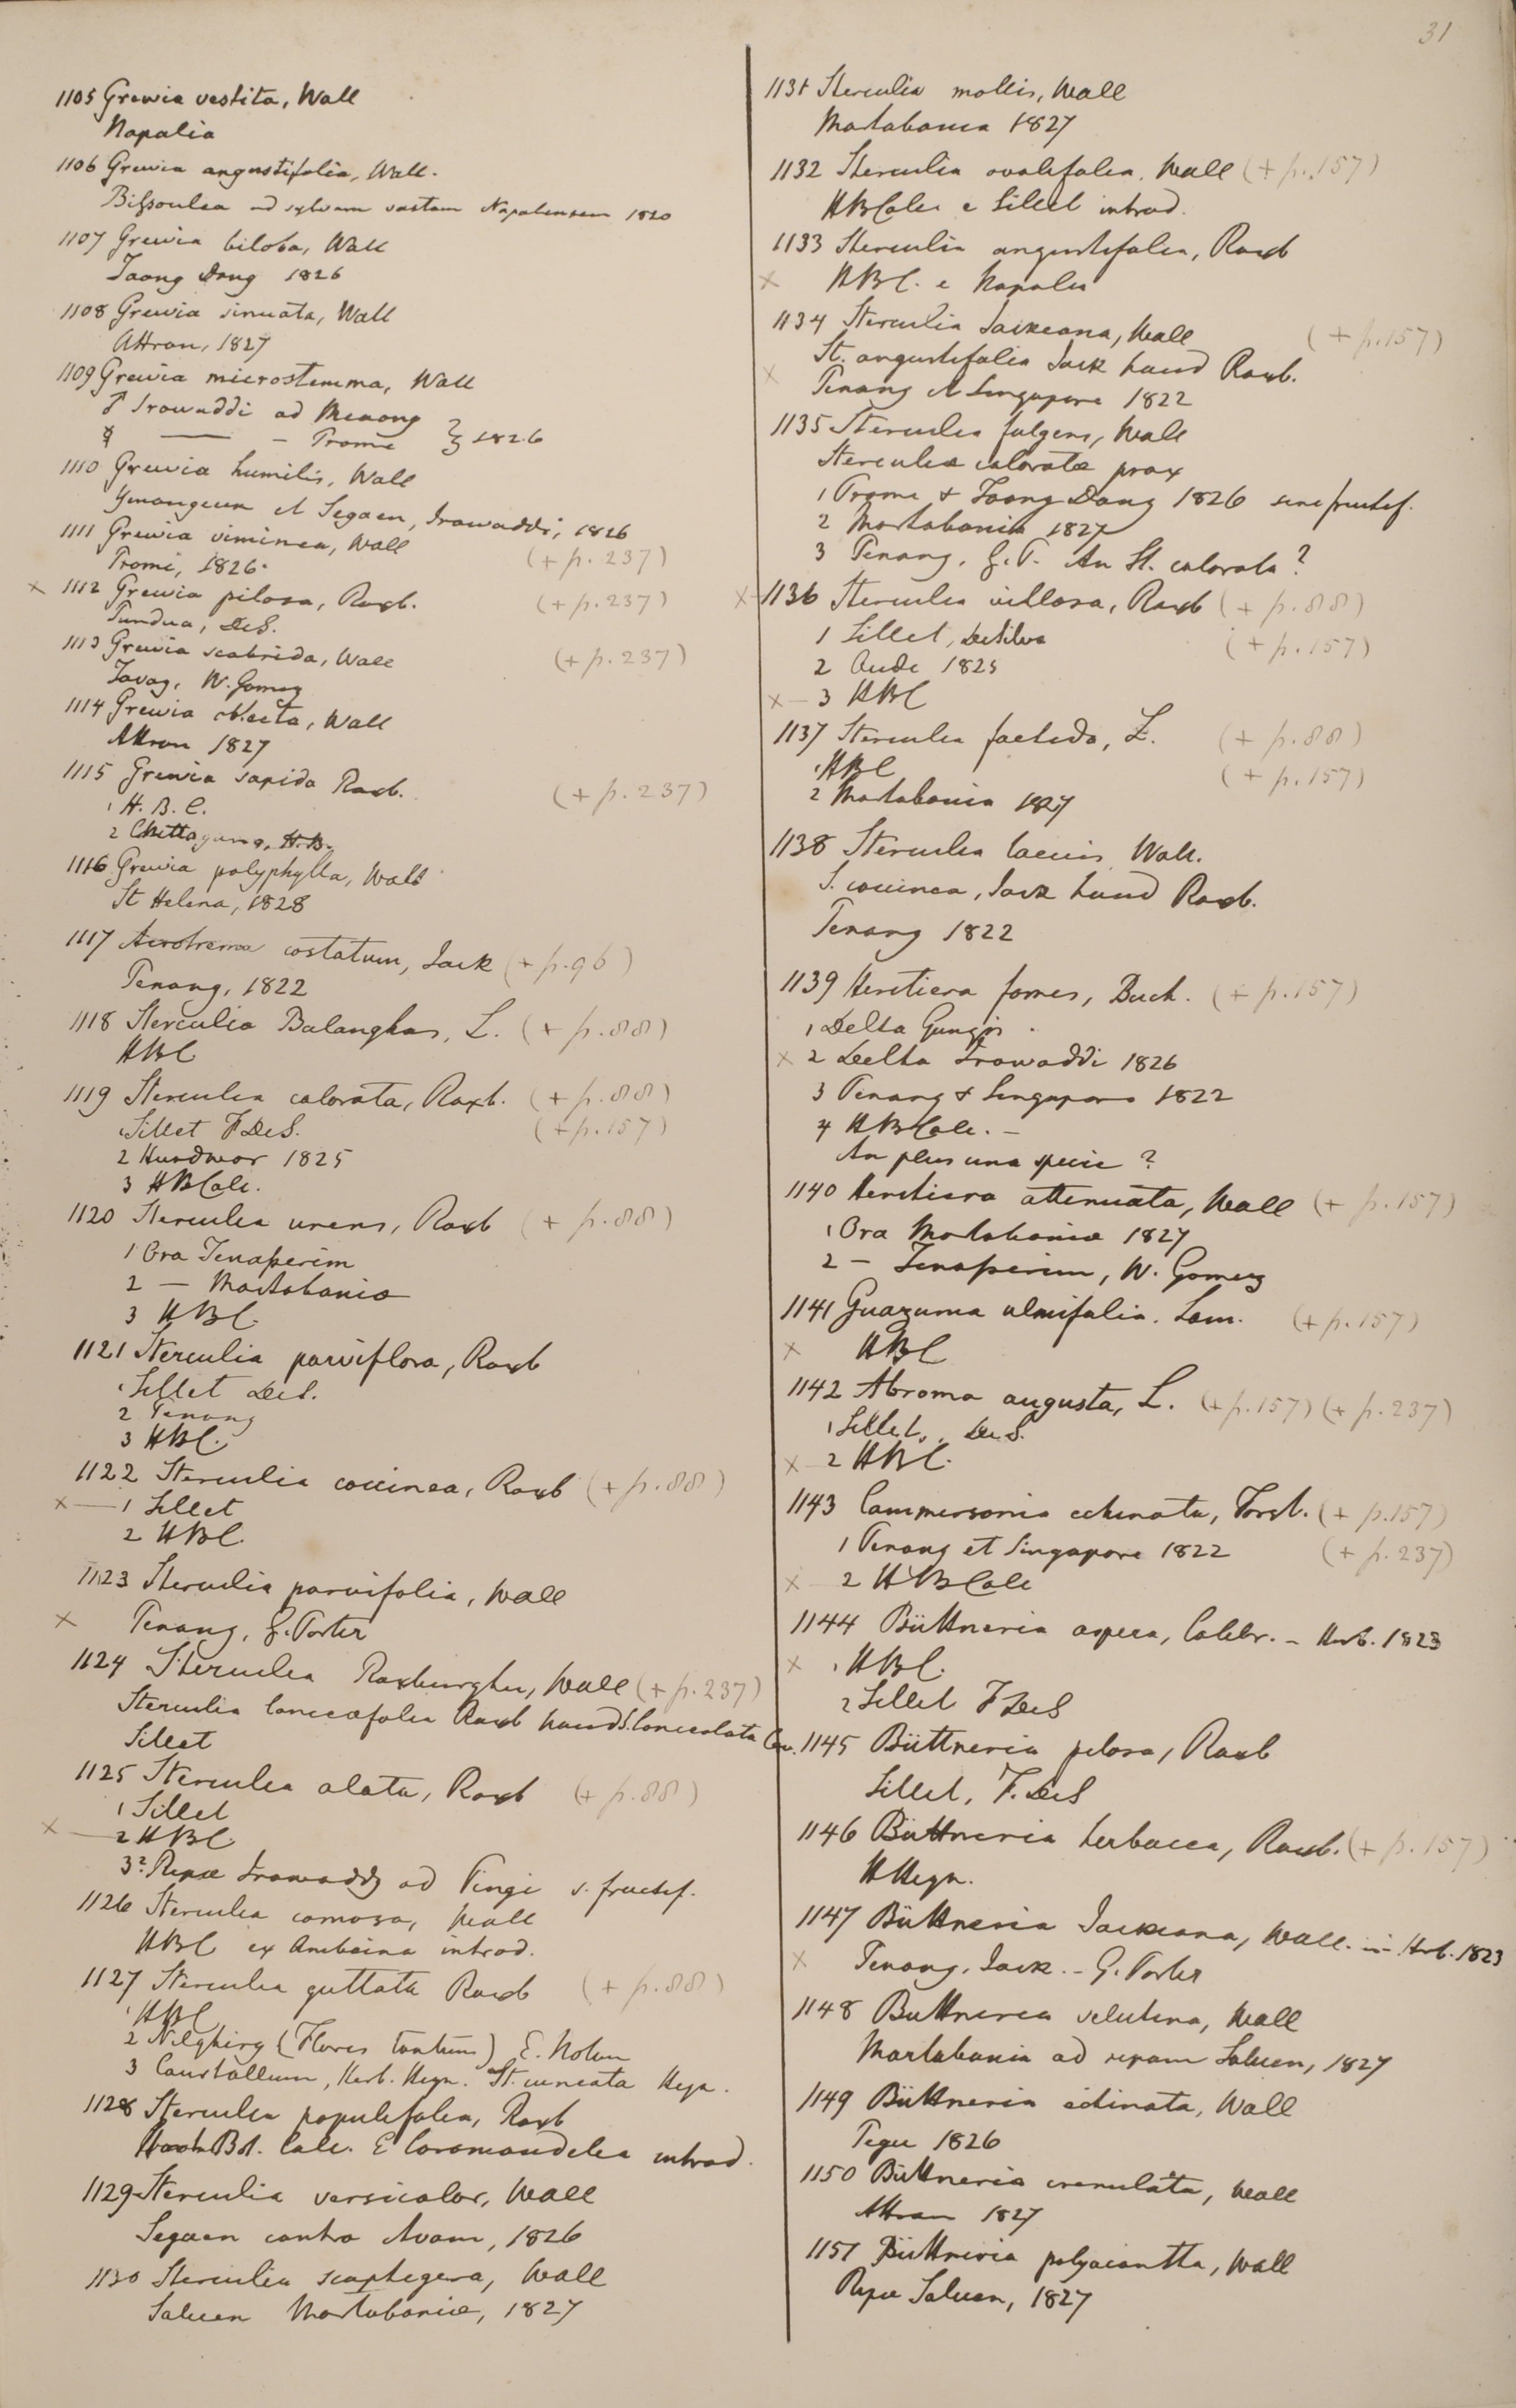 31
1105 Grewia vestita, Wall
Napalia
1106 Grewia angustifolia, Wall.
Bissoulea ad sylvam vastam Napalensem 1820
1107 Grewia biloba, Wall
Taong Dong 1826
1108 Grewia sinuata, Wall
Attran, 1827
1109 Grewia microstemma, Wall
♂ Irawaddi ad Meaong
☿ — - Prome } 1826
1110 Grewia humilis, Wall
Yenangeum et Segaen, Irawaddi, 1826
1111 Grewia viminea, Wall
Promi, 1826. (+ p. 237)
x 1112 Grewia pilosa, Roxb. (+ p. 237)
Pundua, DeS.
1113 Grewia scabrida, Wall (+ p. 237)
Tavoy, W. Gomez
1114 Grewia oblecta, Wall
Attran 1827
1115 Grewia sapida Roxb. (+ p. 237)
1 H. B. C.
2 Chittagong, H.B.
1116 Grewia polyphylla, Wall
St Helena, 1828
1117 Acrotrema costatum, Jack (+ p. 96)
Penang, 1822
1118 Sterculia Balanghas, L. (+ p. 88)
HBC
1119 Sterculia colorata, Roxb. (+ p. 88)
1 Sillet F DeS. (+ p. 157)
2 Hurdwar 1825
3 HBCalc.
1120 Sterculia urens, Roxb (+ p. 88)
1 Ora Tenasserim
2 — Martabania
3 HBC.
1121 Sterculia parviflora, Roxb
1 Sillet DeS.
2 Penang
3 HBC.
1122 Sterculia coccinea, Roxb (+ p. 88)
x — 1 Sillet
2 HBC.
1123 Sterculia parvifolia, Wall
x Penang, G. Porter
1124 Sterculia Roxburghii, Wall (+ p. 237)
Sterculia lanceaefolia Roxb haud S. lanceolata Cav.
Sillet
1125 Sterculia alata, Roxb (+ p. 88)
1 Sillet
x — 2 HBC
3? Ripae Irawaddy ad Pingi s. fructif.
1126 Sterculia comosa, Wall
HBC ex Amboina introd.
1127 Sterculia guttata Roxb (+ p. 88)
1 HBC
2 Nilghiry (Flores tantum) E. Noton
3 Courtallum, Herb. Heyn. St. cuneata Heyn.
1128 Sterculia populifolia, Roxb
Hort Bot. Calc. E Coromandelia introd.
1129 Sterculia versicolor, Wall
Segaen contra Avam, 1826
1130 Sterculia scaphigera, Wall
Saluen Martabaniae, 1827
1131 Sterculia mollis, Wall
Martabania 1827
1132 Sterculia ovalifolia, Wall (+ p. 157)
HBCalc e Sillet introd.
1133 Sterculia angustifolia, Roxb
x HBC. e Napalia
1134 Sterculia Jackeana, Wall (+ p. 157)
St. angustifolia Jack haud Roxb.
x Penang et Singapore 1822
1135 Sterculia fulgens, Wall
Sterculiae coloratae prox
1 Prome & Taong Dong 1826 sine fructif.
2 Martabania 1827
3 Penang, G. P. An St. colorata?
x 1136 Sterculia villosa, Roxb (+ p. 88)
1 Sillet, DeSilva (+ p. 157)
2 Oude 1825
x — 3 HBC
1137 Sterculia foetida, L. (+ p. 88)
1 HBC (+ p. 157)
2 Martabania 1827
1138 Sterculia laevis Wall.
S. coccinea, Jack haud Roxb.
Penang 1822
1139 Heritiera fomes, Buch. (+ p. 157)
1 Delta Gangis
x 2 Delta Irawaddi 1826
3 Penang & Singapore 1822
4 HBCalc. —
An plus una specie?
1140 Heritiera attenuata, Wall (+ p. 157)
1 Ora Martabaniae 1827
2 — Tenasserim, W. Gomez
1141 Guazuma ulmifolia. Lam. (+ p. 157)
x HBC
1142 Abroma augusta, L. (+ p. 157) (+ p. 237)
1 Sillet, DeS.
x — 2 HBC.
1143 Commersonia echinata, Forst. (+ p. 157)
1 Penang et Singapore 1822 (+ p. 237)
x 2 HBCalc
1144 Büttneria aspera, Colebr. - Herb. 1823
x 1 HBC.
2 Sillet F DeS
1145 Büttneria pilosa, Roxb
Sillet, F. DeS
1146 Büttneria herbacea, Roxb. (+ p. 157)
HHeyn.
1147 Büttneria Jackeana, Wall. in Herb. 1823
x Penang, Jack. - G. Porter
1148 Buttneria velutina, Wall
Martabania ad ripam Saluen, 1827
1149 Büttneria echinata, Wall
Pegu 1826
1150 Büttneria crenulata, Wall
Attran 1827
1151 Büttneria polyacantha, Wall
Ripa Saluen, 1827